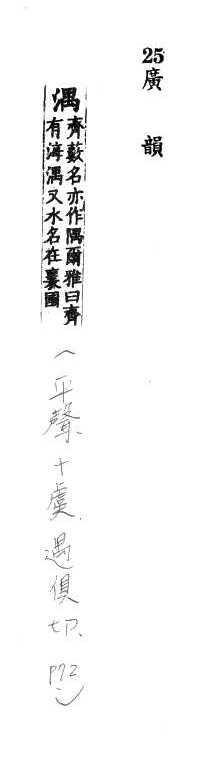 25廣韻
湡齊藪名亦作隅爾雅曰齊
有海湡又水名在襄國
(平聲、十虞、遇俱切、P72)